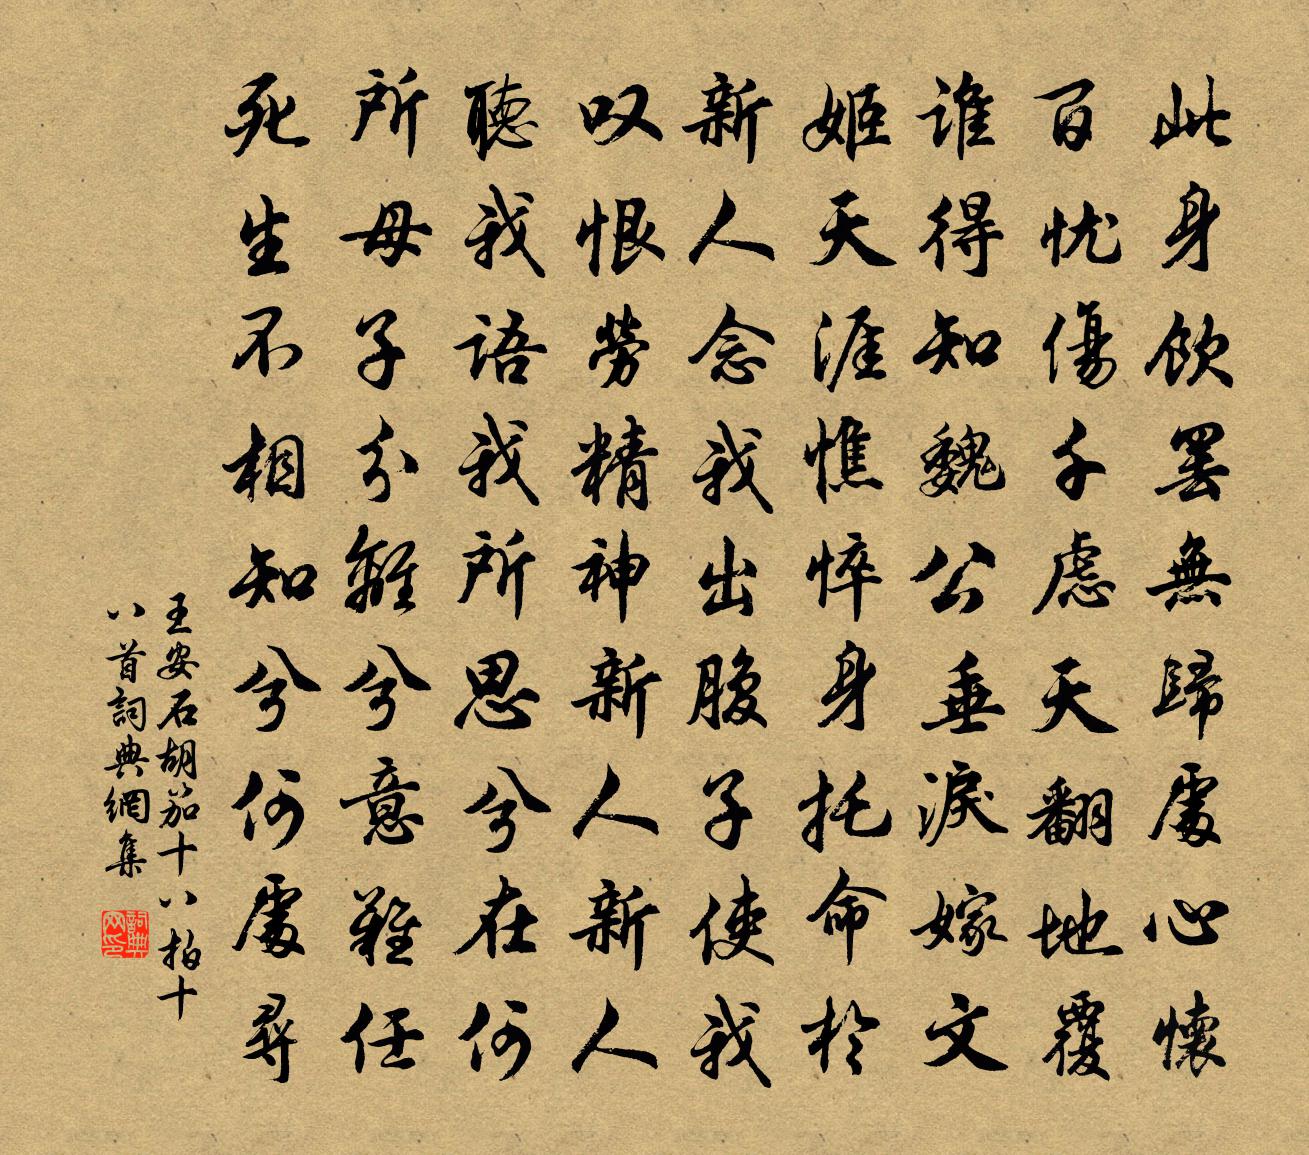 此身飲罷無歸處心懷
百忧傷千慮天翻地覆
誰得知魏公垂淚嫁文
姬天涯憔悴身托命於
新人念我出腹子使我
叹恨勞精神新人新人
聽我語我所思兮在何
所母子分離兮意難任
死生不相知兮何處尋
王安石胡笳十八拍十
八首詞典網集
詞典网印